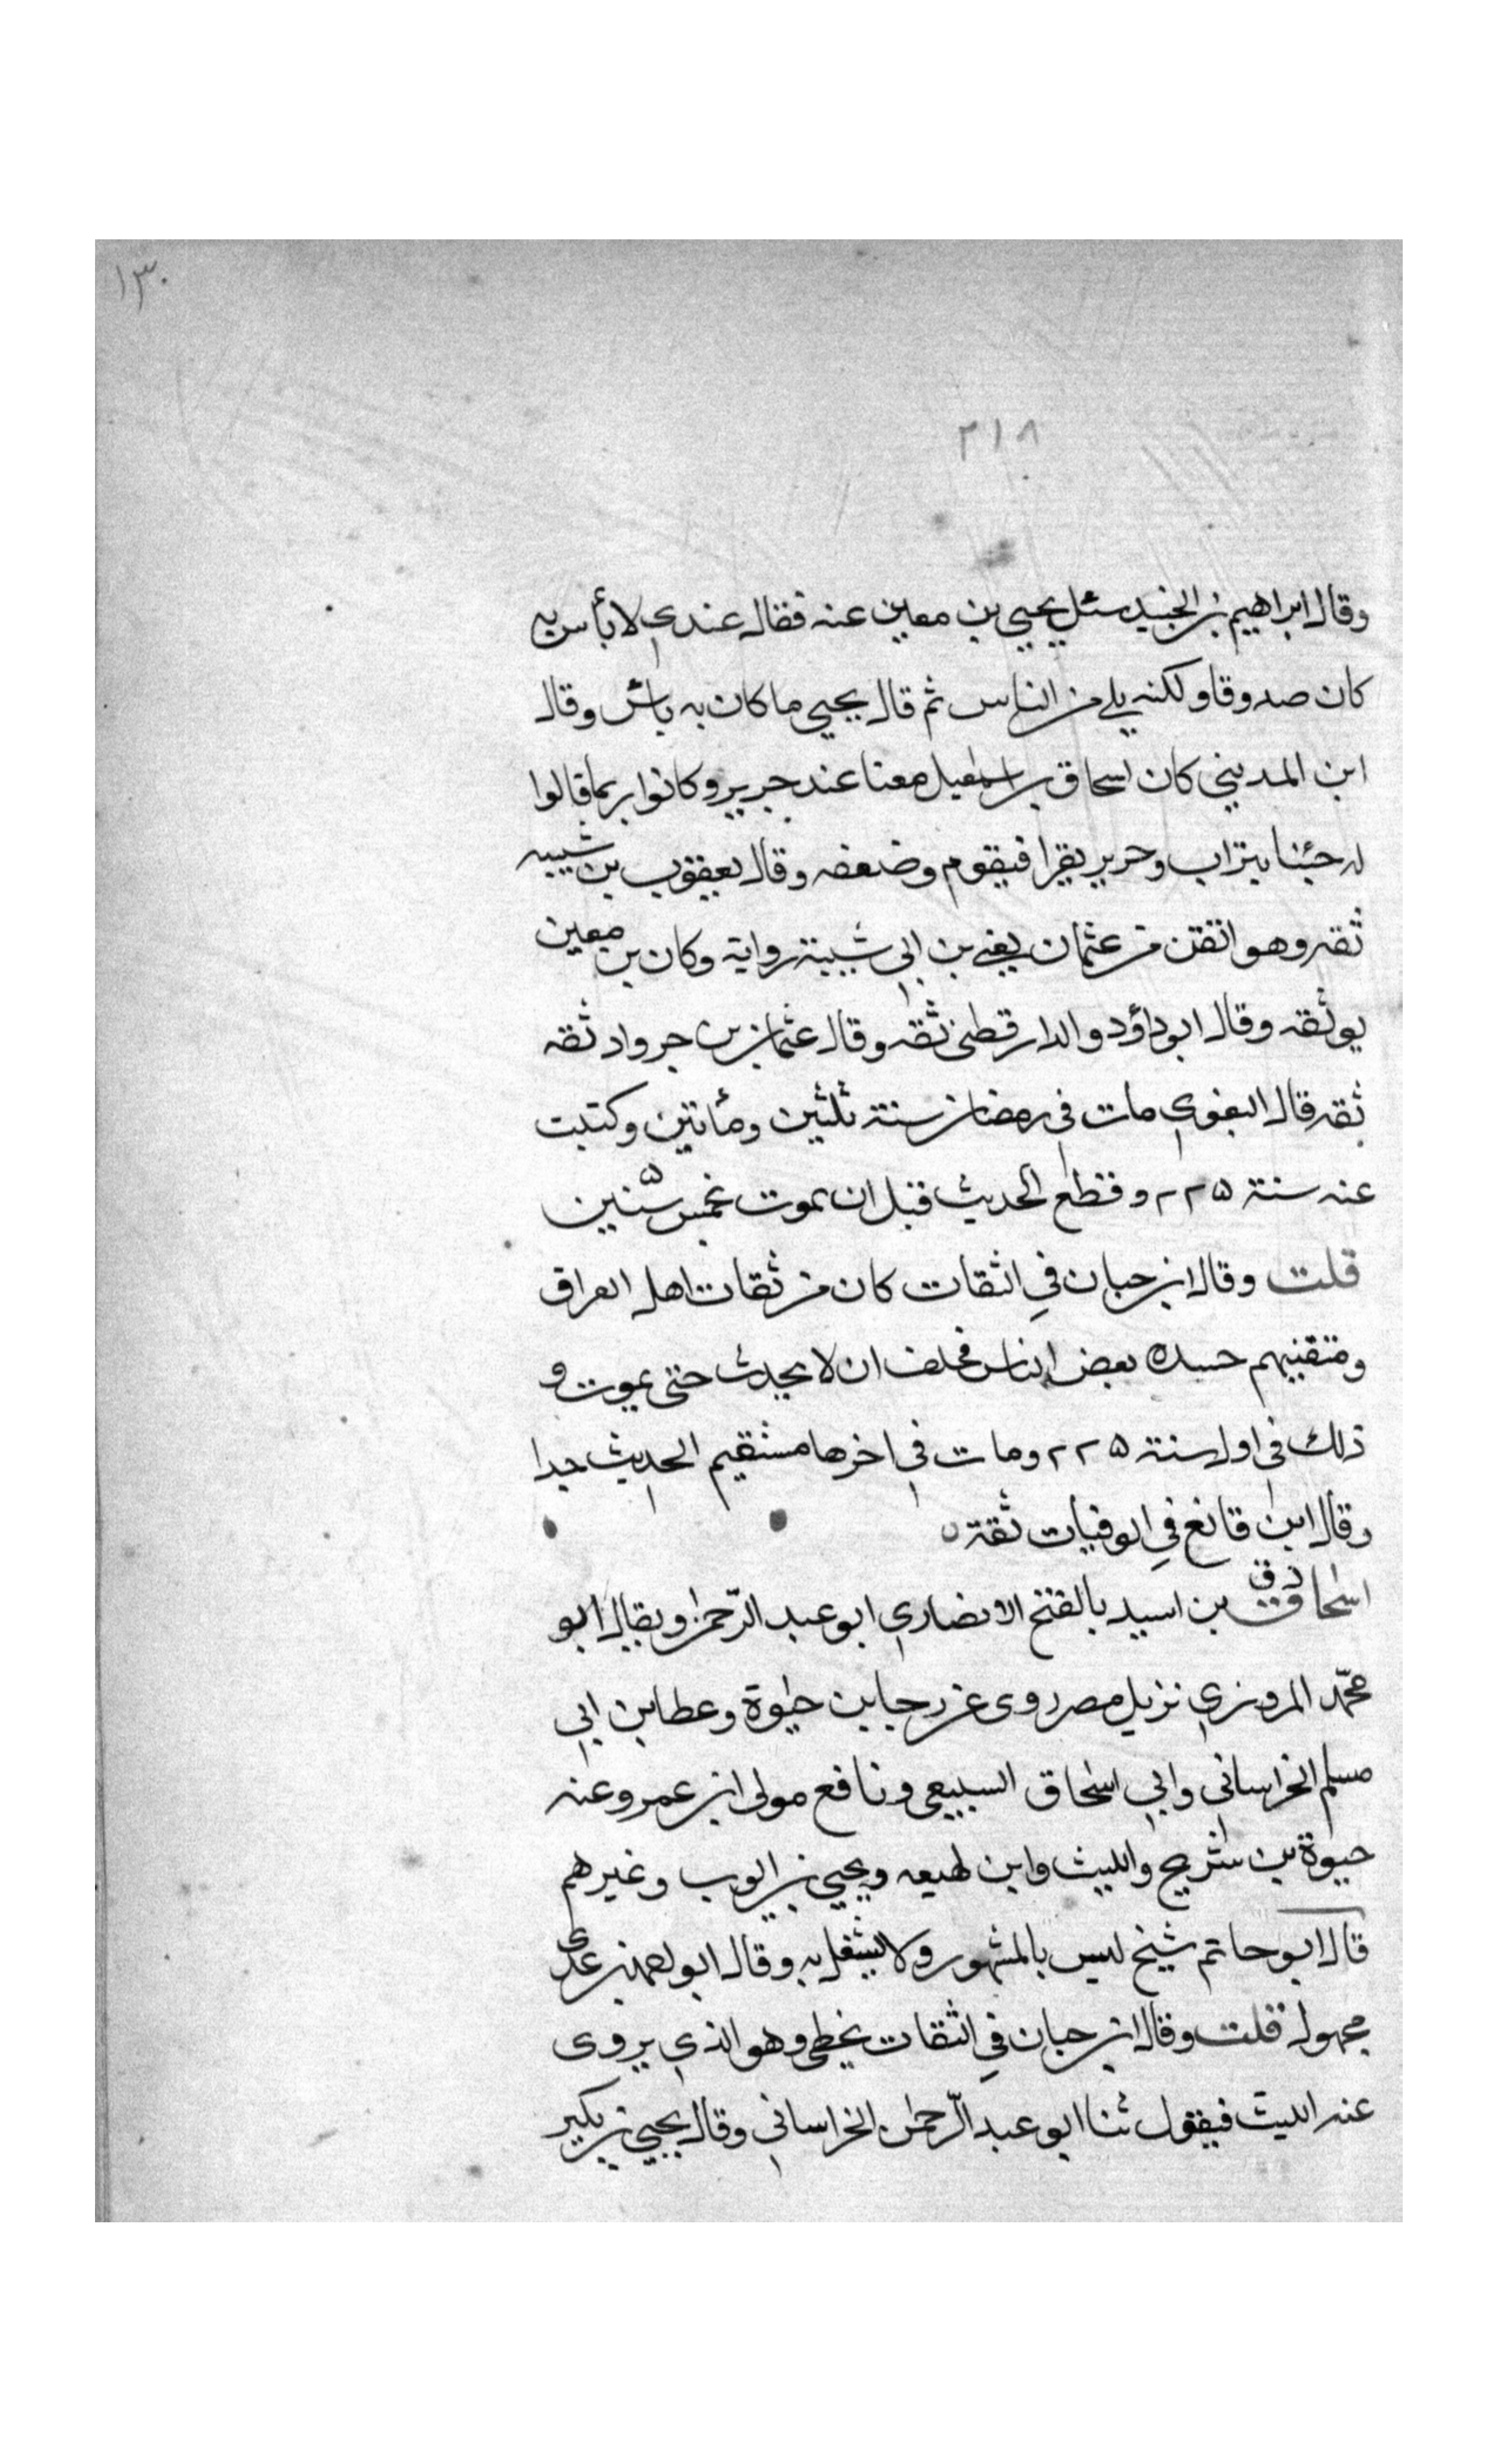 ١٣٠
٢١٨
وقال ابراهيم بن الجنيد سئل يحيي بن معين عنه فقال عندي لا بأس به
كان صدوقا ولكنه بلي من الناس ثم قال يحيي ما كان به باس وقال
ابن المديني كان اسحاق بن اسمعيل معنا عند جرير وكانوا ربما قالوا
له جئنا بتراب وجرير يقرا فيقوم وضعفه وقال يعقوب بن شيبه
ثقه وهو اتقن من عثمان يعني بن ابي شيبة رواية وكان بن معين
يوثقه وقال ابو داؤد والدارقطني ثقه وقال عثمان بن جرواد ثقه
ثقه قال البغوي مات في رمضان سنة ثلثين ومأتين وكتبت
عنه سنة ٢٢٥ وقطع الحديث قبل ان يموت بخمس سنين
قلت وقال ابن حبان في الثقات كان من ثقات اهل العراق
ومتقنيهم حسده بعض الناس فحلف ان لا يحدث حتى يموت و
ذلك في اول سنة ٢٢٥ ومات في اخرها مستقيم الحديث جدا
وقال ابن قانع في الوفيات ثقة
اسحاق د ق بن اسيد بالفتح الانصاري ابو عبد الرّحمن ويقال ابو
محمّد المروزي نزيل مصر روى عن رجا بن حيوة وعطا بن ابي
مسلم الخراساني وابي اسحاق السبيعي ونافع مولى ابن عمر وعنه
حيوة بن شريح والليث وابن لهيعه ويحيي بن ايوب وغيرهم
قال ابو حاتم شيخ ليس بالمشهور ولا يشغل به وقال ابو احمد بن عدي
مجهول قلت وقال ابن حبان في الثقات يخطي وهو الذي يروى
عنه الليث فيقول ثنا ابو عبد الرّحمن الخراساني وقال يحيي بن بكير